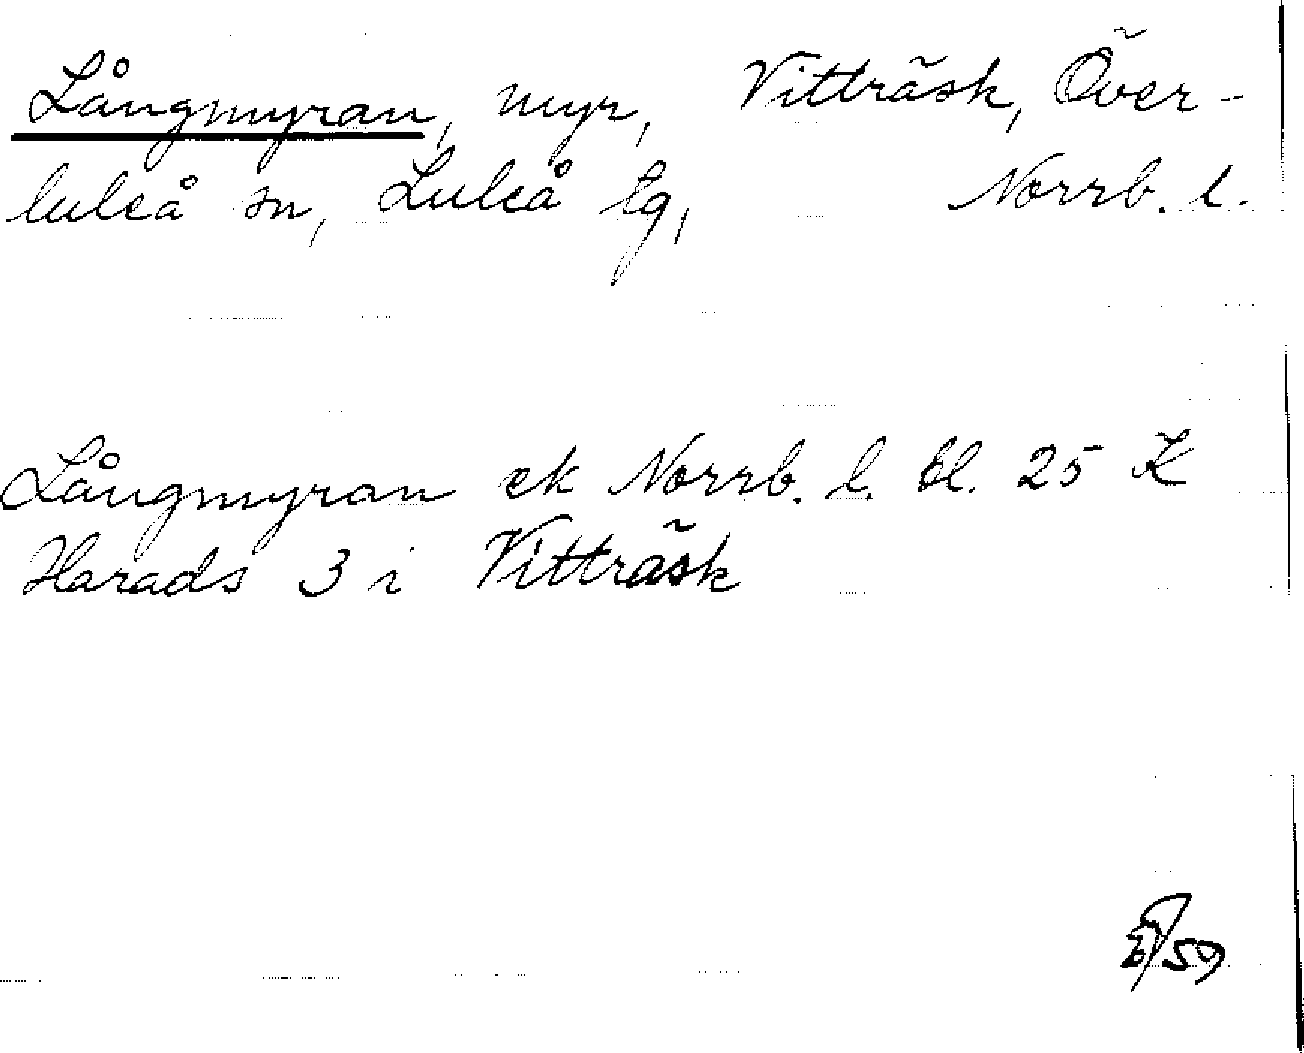 Långmyran, myr, Vitträsk, Över-
luleå sn, Luleå tg, Norrb. l.
Långmyran ek Norrb. l. bl. 25 K
Harads 3 i Vitträsk